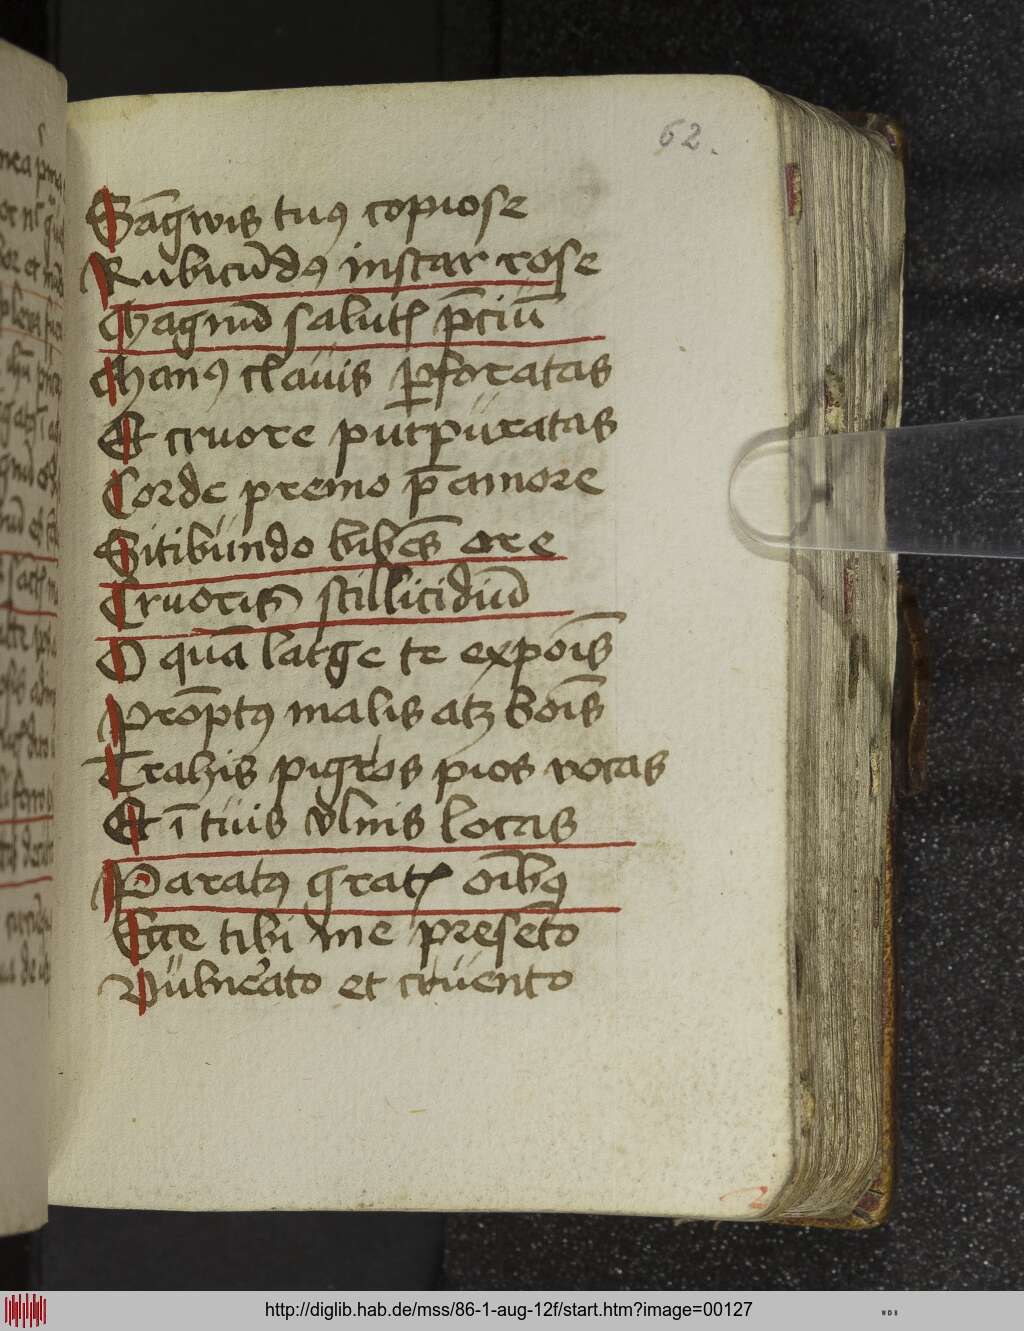 62.
Sāgwis tuꝰ copiose
Rubicūdꝰ instar rose
Magnū salutꝭ p̄ciū
Manꝰ clauis ꝑforatas
Et cruore purpuratas
Corde premo p̄ amore
Sitibundo bibēs ore
Cruoris stillicidiū
O quā large te expōis
Prōptꝰ malis atꝫ bōis
Trahis pigros pios vocas
Et ī tuis vlnis locas
Paratꝰ gratꝭ oībꝰ
Ecce tibi me presēto
Vulnerato et cruento
http://diglib.hab.de/mss/86-1-aug-12f/start.htm?image=00127